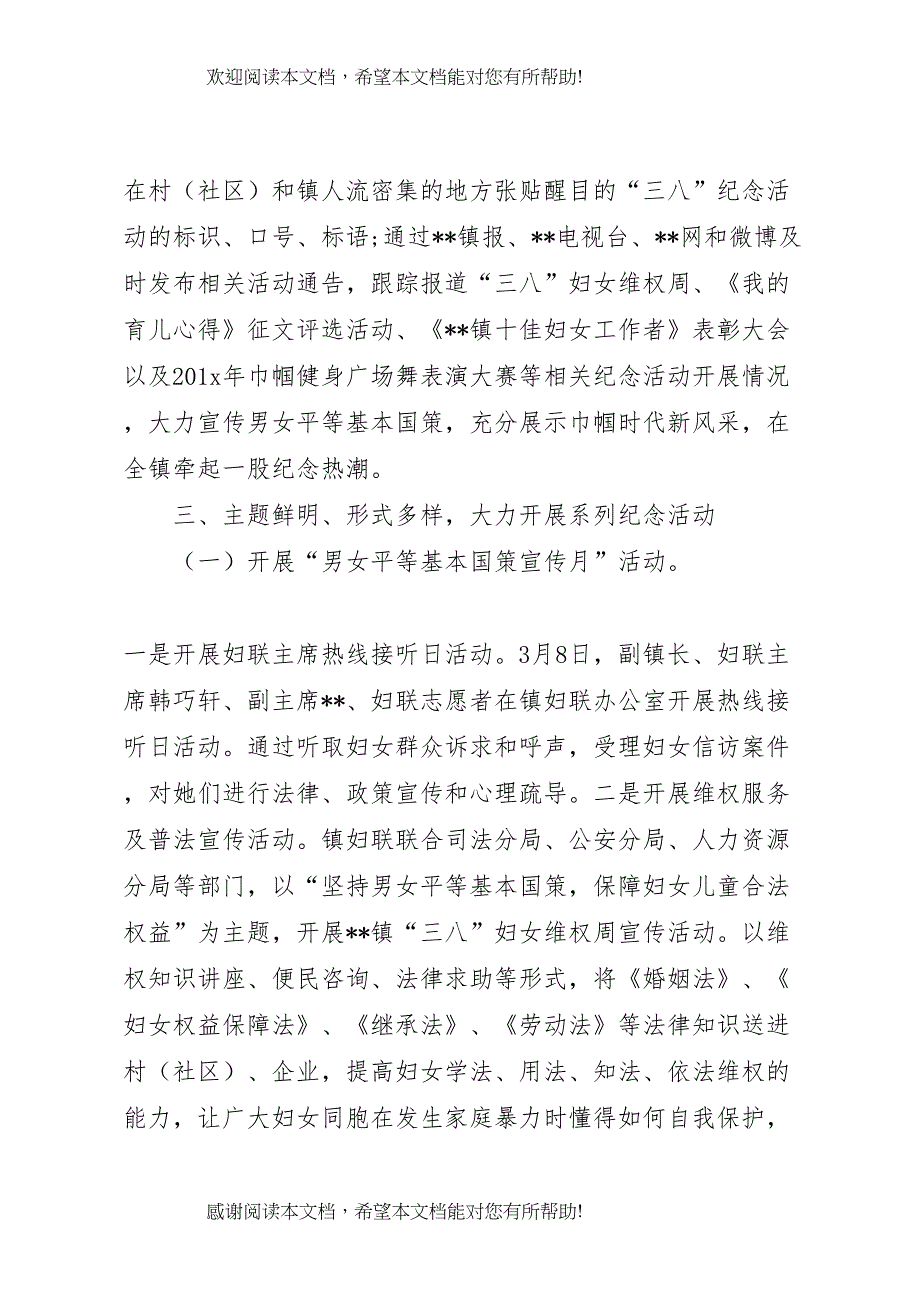 欢迎阅读本文档，希望本文档能对您有所帮助!
在村（社区）和镇人流密集的地方张贴醒目的“三八”纪念活
动的标识、口号、标语;通过**镇报、**电视台、**网和微博及
时发布相关活动通告，跟踪报道“三八”妇女维权周、《我的
育儿心得》征文评选活动、《**镇十佳妇女工作者》表彰大会
以及201x年巾帼健身广场舞表演大赛等相关纪念活动开展情况
，大力宣传男女平等基本国策，充分展示巾帼时代新风采，在
全镇牵起一股纪念热潮。
三、主题鲜明、形式多样，大力开展系列纪念活动
（一）开展“男女平等基本国策宣传月”活动。
一是开展妇联主席热线接听日活动。3月8日，副镇长、妇联主
席韩巧轩、副主席**、妇联志愿者在镇妇联办公室开展热线接
听日活动。通过听取妇女群众诉求和呼声，受理妇女信访案件
，对她们进行法律、政策宣传和心理疏导。二是开展维权服务
及普法宣传活动。镇妇联联合司法分局、公安分局、人力资源
分局等部门，以“坚持男女平等基本国策，保障妇女儿童合法
权益”为主题，开展**镇“三八”妇女维权周宣传活动。以维
权知识讲座、便民咨询、法律求助等形式，将《婚姻法》、《
妇女权益保障法》、《继承法》、《劳动法》等法律知识送进
村（社区）、企业，提高妇女学法、用法、知法、依法维权的
能力，让广大妇女同胞在发生家庭暴力时懂得如何自我保护，
感谢阅读本文档，希望本文档能对您有所帮助!